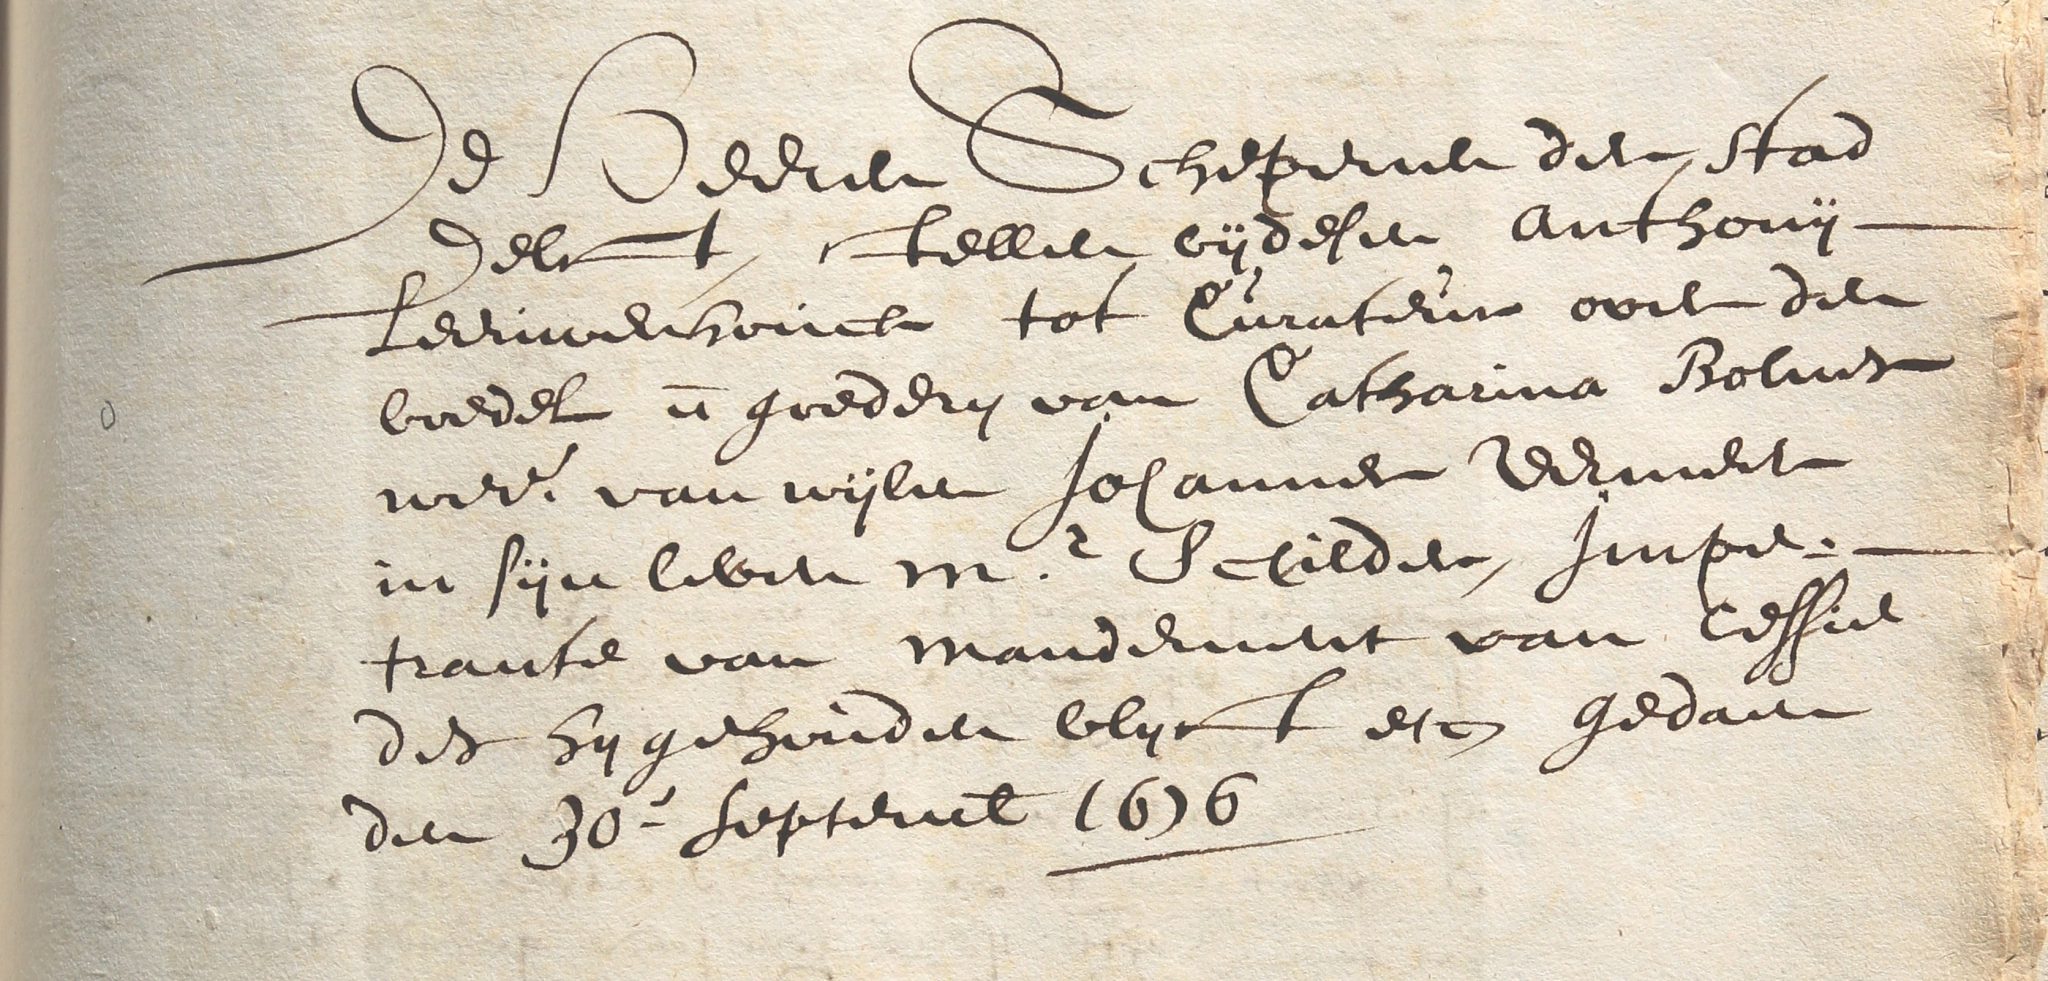 De Heeren Schepenen der Stad
Delft, stellen bijdesen Anthonij
Leeuwenhouck tot Curateur over den
boedel en̄ goederen van Catharina Bolnes
wede. van wijlen Johannes Vermeer
in sijn leven mr. Schilder, Impe-
trante van mandement van Cessie
des hy gehouden blyft etc gedaen
den 30e. Septemb 1676